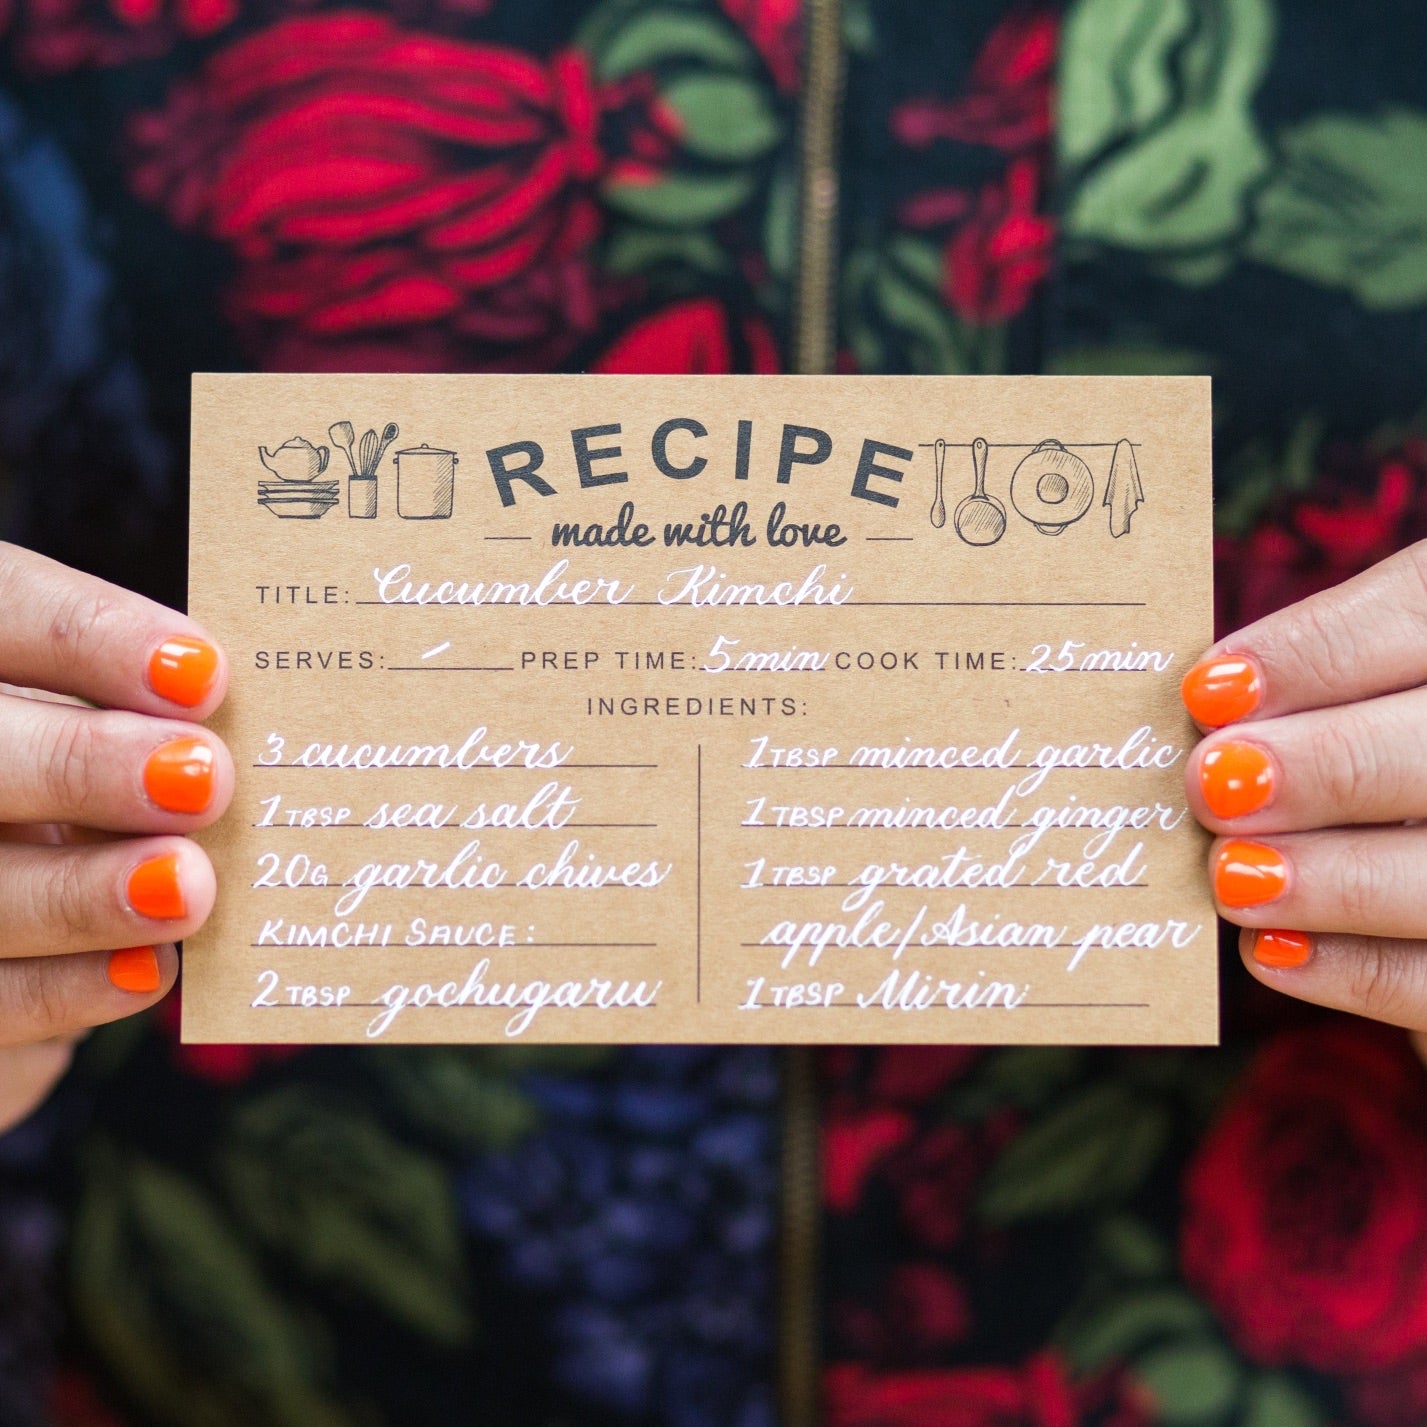 RECIPE
made with love
TITLE: Cucumber Kimchi
SERVES: - PREP TIME: 5 min COOK TIME: 25 min
INGREDIENTS:
3 cucumbers
1 TBSP sea salt
20G garlic chives
KIMCHI SAUCE:
2 TBSP gochugaru
1 TBSP minced garlic
1 TBSP minced ginger
1 TBSP grated red
apple/Asian pear
1 TBSP Mirin